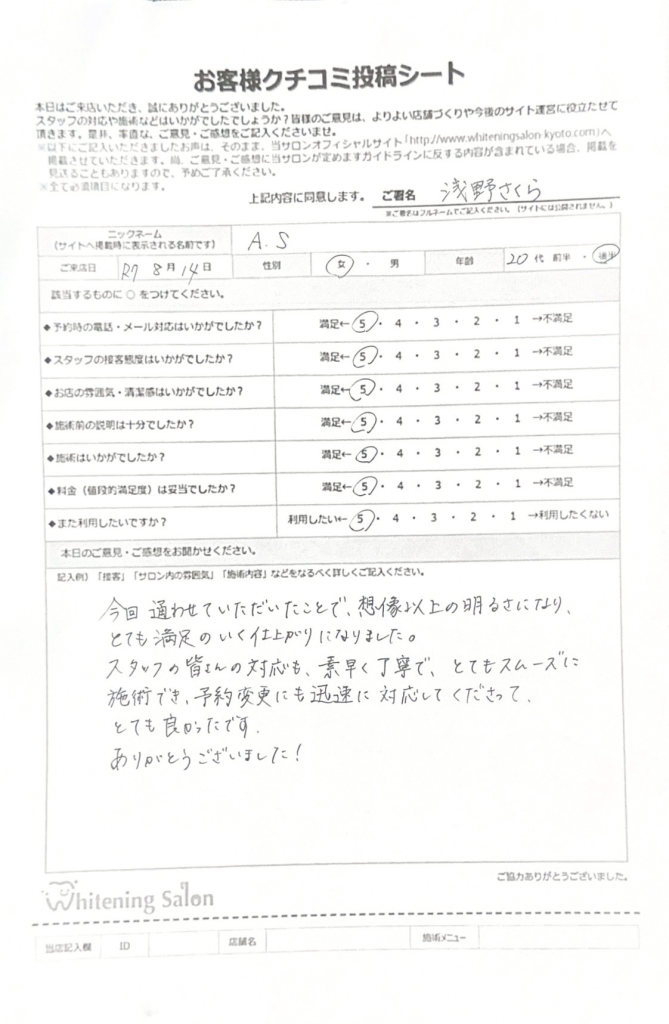 お客様クチコミ投稿シート
本日はご来店いただき、誠にありがとうございました。
スタッフの対応や施術などはいかがでしたでしょうか？皆様のご意見は、よりよい店舗づくりや今後のサイト運営に役立たせて
頂きます。是非、率直な、ご意見・ご感想をご記入くださいませ。
※以下にご記入いただきましたお声は、そのまま、当サロンオフィシャルサイト「http://www.whiteningsalon-kyoto.com」へ
掲載させていただきます。尚、ご意見・ご感想に当サロンが定めますガイドラインに反する内容が含まれている場合、掲載を
見送ることもありますので、予めご了承ください。
※全て必須項目になります。
上記内容に同意します。 ご署名 浅野さくら
※ご署名はフルネームでご記入ください。（サイトには公開されません。）
ニックネーム
（サイトへ掲載時に表示される名前です） A.S
ご来店日 R7 8月14日 性別 女 ・ 男 年齢 20代 前半 ・ 後半
該当するものに○をつけてください。
◆予約時の電話・メール対応はいかがでしたか？ 満足← 5 ・ 4 ・ 3 ・ 2 ・ 1 →不満足
◆スタッフの接客態度はいかがでしたか？ 満足← 5 ・ 4 ・ 3 ・ 2 ・ 1 →不満足
◆お店の雰囲気・清潔感はいかがでしたか？ 満足← 5 ・ 4 ・ 3 ・ 2 ・ 1 →不満足
◆施術前の説明は十分でしたか？ 満足← 5 ・ 4 ・ 3 ・ 2 ・ 1 →不満足
◆施術はいかがでしたか？ 満足← 5 ・ 4 ・ 3 ・ 2 ・ 1 →不満足
◆料金（値段的満足度）は妥当でしたか？ 満足← 5 ・ 4 ・ 3 ・ 2 ・ 1 →不満足
◆また利用したいですか？ 利用したい← 5 ・ 4 ・ 3 ・ 2 ・ 1 →利用したくない
本日のご意見・ご感想をお聞かせください。
記入例）「接客」「サロン内の雰囲気」「施術内容」などをなるべく詳しくご記入ください。
今回 通わせていただいたことで、想像以上の明るさになり、
とても満足のいく仕上がりになりました。
スタッフの皆さんの対応も、素早く丁寧で、とてもスムーズに
施術でき、予約変更にも迅速に対応してくださって、
とても良かったです。
ありがとうございました！
ご協力ありがとうございました。
Whitening Salon
当店記入欄 ID 店舗名 施術メニュー